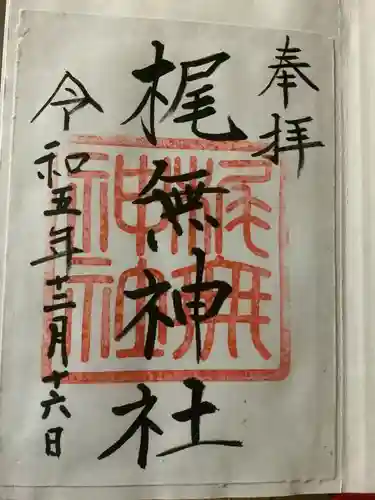 奉拝
梶無神社
令和五年十二月十六日
梶無神社